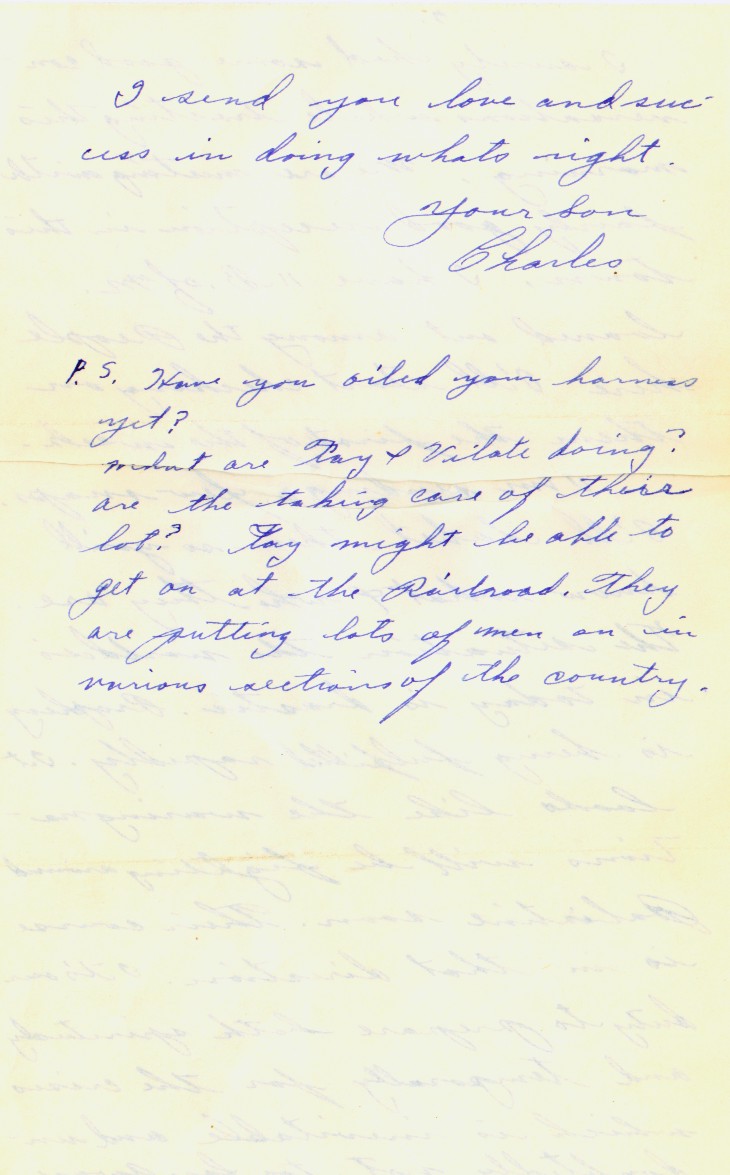 I send you love and suc-
cess in doing whats right.
Your Son
Charles
P.S. Have you oiled your harness
yet?
what are Fay & Vilate doing?
are the taking care of their
lot? Fay might be able to
get on at the Railroad. They
are putting lots of men on in
various sections of the country.